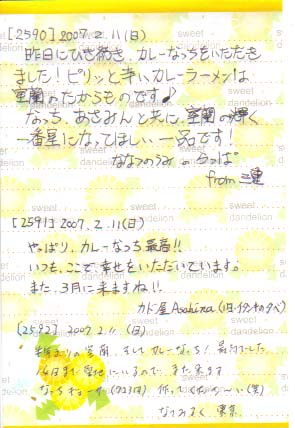 [2590] 2007. 2. 11 (日)
昨日にひき続き、カレーなっちをいただき
ました！ピリッと辛いカレーラーメンは
室蘭のたからものです♪
なっち、あさみんと共に、室蘭の輝く
一番星になってほしい一品です！
ななつのうみ。のらっぱ
from 三重
sweet dandelion
[2591] 2007. 2. 11 (日)
やっぱり、カレーなっち最高!!
いつも、ここで幸せをいただいています。
また、3月に来ますね!!
カド屋 Asahina
[2592] 2007 2. 11 (日)
の室蘭、そしてカレーなっち！最高でした
日まで聖地にいるので、また来ます
なっちチャーハン 作ってくださーい(笑)
東京